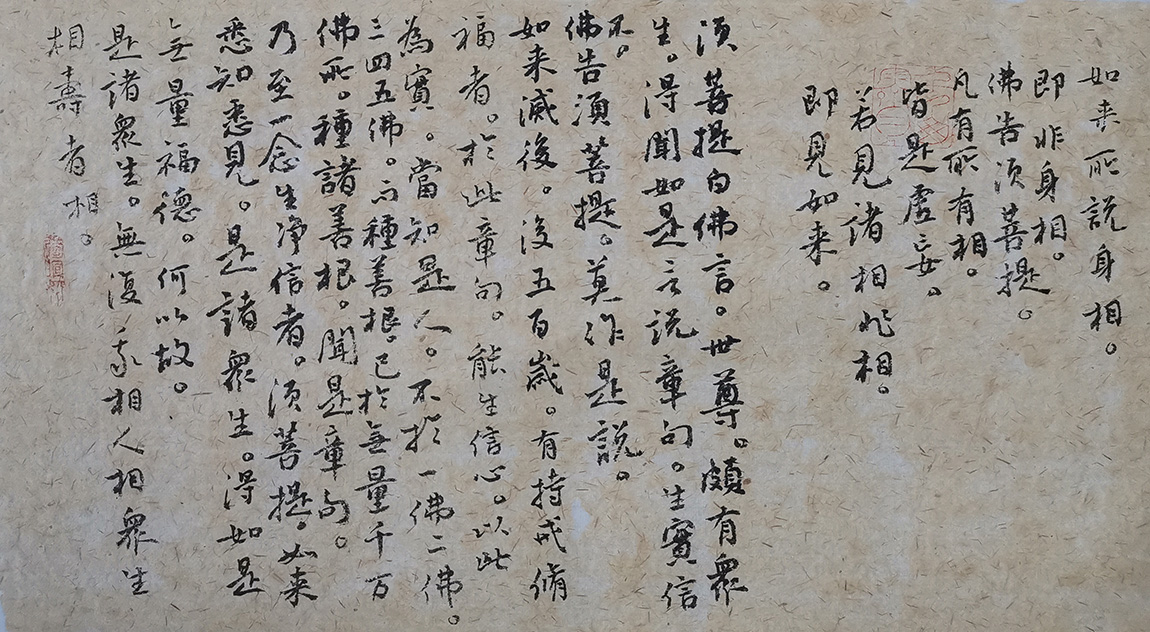 如来所説身相。
即非身相。
佛告須菩提。
凡有所有相。
皆是虚妄。
若見諸相非相。
即見如来。
須菩提白佛言。世尊。頗有衆
生。得聞如是言説章句。生實信
不。
佛告須菩提。莫作是説。
如来滅後。後五百歲。有持戒脩
福者。於此章句。能生信心。以此
為實。當知是人。不於一佛二佛。
三四五佛。而種善根。已於無量千万
佛所。種諸善根。聞是章句。
乃至一念生净信者。須菩提。如来
悉知悉見。是諸衆生。得如是
無量福德。何以故。
是諸衆生。無復我相人相衆生
相壽者相。